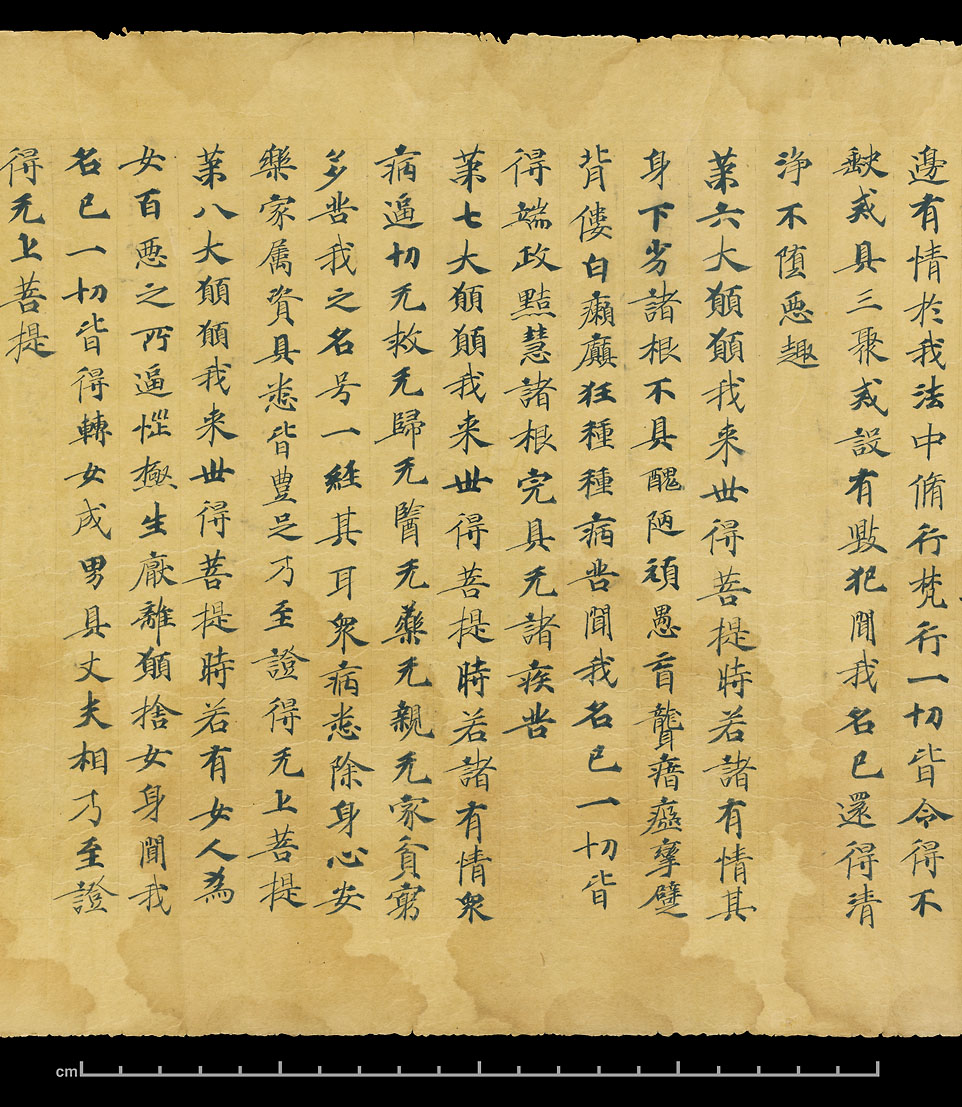 邊有情於我法中脩行梵行一切皆令得不
䴵戒具三聚戒設有毀犯聞我名已還得清
淨不堕惡趣
苐六大願願我来世得菩提時若諸有情其
身下劣諸根不具醜陋頑愚盲聾瘖瘂攣躄
背僂白癩癲狂種種病苦聞我名已一切皆
得端政黠慧諸根完具无諸疾苦
苐七大願願我来世得菩提時若諸有情衆
病逼切无救无歸无醫无藥无親无家貧窮
多苦我之名号一經其耳衆病悉除身心安
樂家属資具悉皆豊足乃至證得无上菩提
苐八大願願我来世得菩提時若有女人為
女百惡之所逼惱極生厭離願捨女身聞我
名已一切皆得轉女成男具丈夫相乃至證
得无上菩提
cm